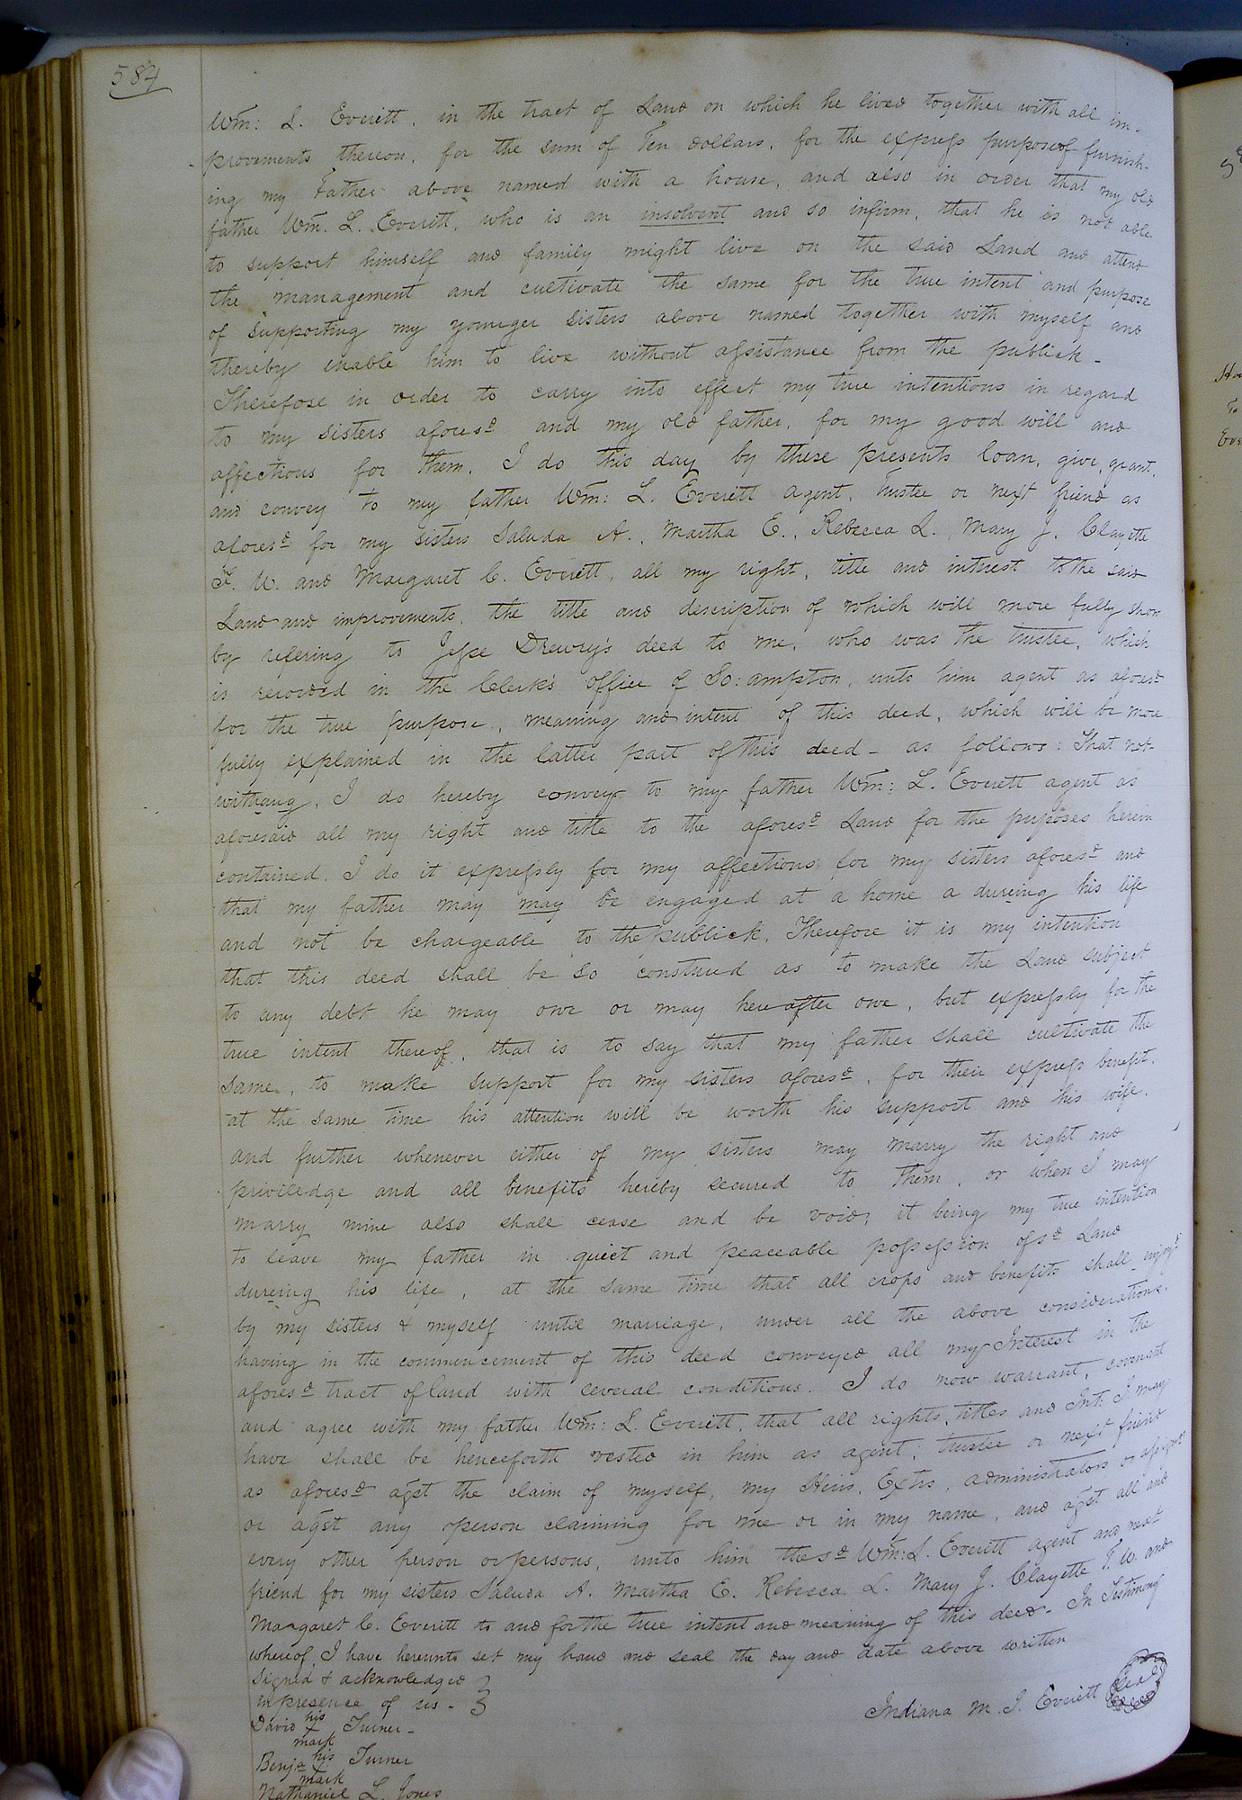 584
Wm: L. Everitt, in the tract of Land on which he lives together with all im-
provements thereon, for the sum of Ten dollars, for the express purpose of furnish-
ing my Father above named with a house, and also in order that my old
father Wm. L. Everitt, who is an insolvent and so infirm, that he is not able
to support himself and family might live on the said Land and attend
the management and cultivate the same for the true intent and purpose
of supporting my younger sisters above named together with myself and
thereby enable him to live without assistance from the publick -
Therefore in order to carry into effect my true intentions in regard
to my sisters aforesd and my old father, for my good will and
affections for them, I do this day by these presents loan, give, grant,
and convey to my father Wm: L. Everitt agent, Trustee or next friend as
aforesd for my sisters Saluda A., Martha E., Rebecca L. Mary J. Clayette
F. W. and Margaret C. Everitt, all my right, title and intrest to the said
Land and improvements, the title and description of which will more fully show
by refering to Jesse Drewry's deed to me, who was the trustee, which
is recorded in the Clerk's office of So:ampton, unto him agent as aforesd
for the true purpose, meaning and intent of this deed, which will be more
fully explained in the latter part of this deed - as follows: That not-
withang, I do hereby convey to my father Wm: L. Everitt agent as
aforesaid all my right and title to the aforesd Land for the puposes herein
contained. I do it expressly for my affections for my sisters aforesd and
that my father may may be engaged at a home a dureing his life
and not be chargeable to the publick. Therefore it is my intention
that this deed shall be so construed as to make the Land subject
to any debt he may owe or may hereafter owe, but expressly for the
true intent thereof, that is to say that my father shall cultivate the
same, to make support for my sisters aforesd, for their express benefit.
at the same time his attention will be worth his support and his wife.
and further whenever either of my sisters may marry the right and
priviledge and all benefits hereby secured to them, or when I may
marry mine also shall cease and be void; it being my true intention
to leave my father in quiet and peaceable possession of sd Land
dureing his life, at the same time that all crops and benefits shall enjoyd
by my sisters & myself until marriage, under all the above considerations.
having in the commencement of this deed conveyed all my Interest in the
aforesd tract of land with several conditions. I do now warrant, covenant
and agree with my father Wm: L. Everitt, that all rights, titles and Int: I may
have shall be henceforth vested in him as agent, trustee or next friend
as aforesd agst the claim of myself, my Heirs, Extrs, administrators or assigns
or agst any person claiming for me or in my name, and agst all and
every other person or persons, unto him the sd Wm: L. Everitt agent and next
friend for my sisters Saluda A. Martha E. Rebecca L. Mary J. Clayette F. W. and
Margaret C. Everitt to and for the true intent and meaning of this deed - In Testimony
whereof, I have hereunto set my hand and seal the day and date above written
Signed & acknowledged
in presence of us -
Indiana M. J. Everitt Seal
David his Turner -
mark
Benja his Turner
mark
Nathaniel L. Jones